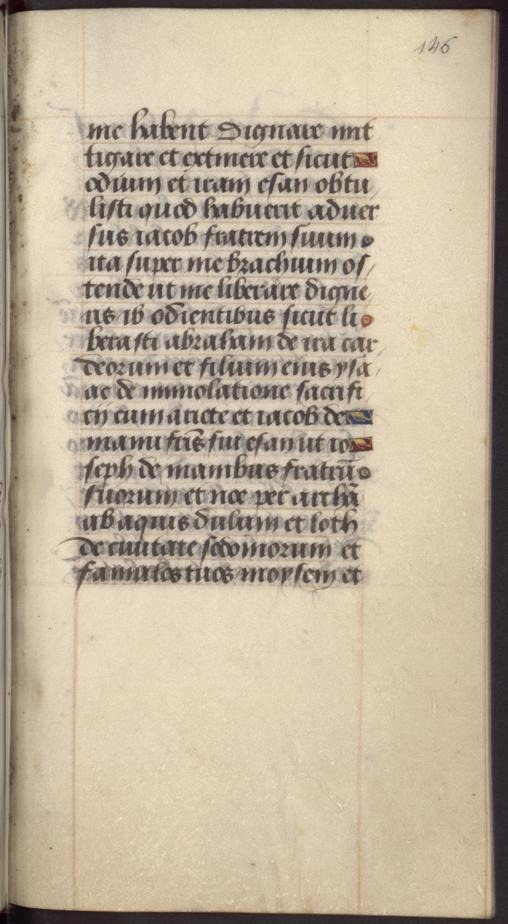 146
me habent Dignare mit
tigare et extinere et sicut
odium et iram esau obtu
listi quod habuerit aduer
sus iacob fratrem suum
ita super me brachium os
tende ut me liberare digne
ris ab odientibus sicut li
berasti abraham de ira cal
deorum et filium eius ysa
ac de immolatione sacrifi
cij cum ariete et iacob de
manu fr̄is sui esau ut io
seph de manibus fratrū
suorum et noe per archā
ab aquis diluuii et loth
de ciuitate sodomorum et
famulos tuos moysem et